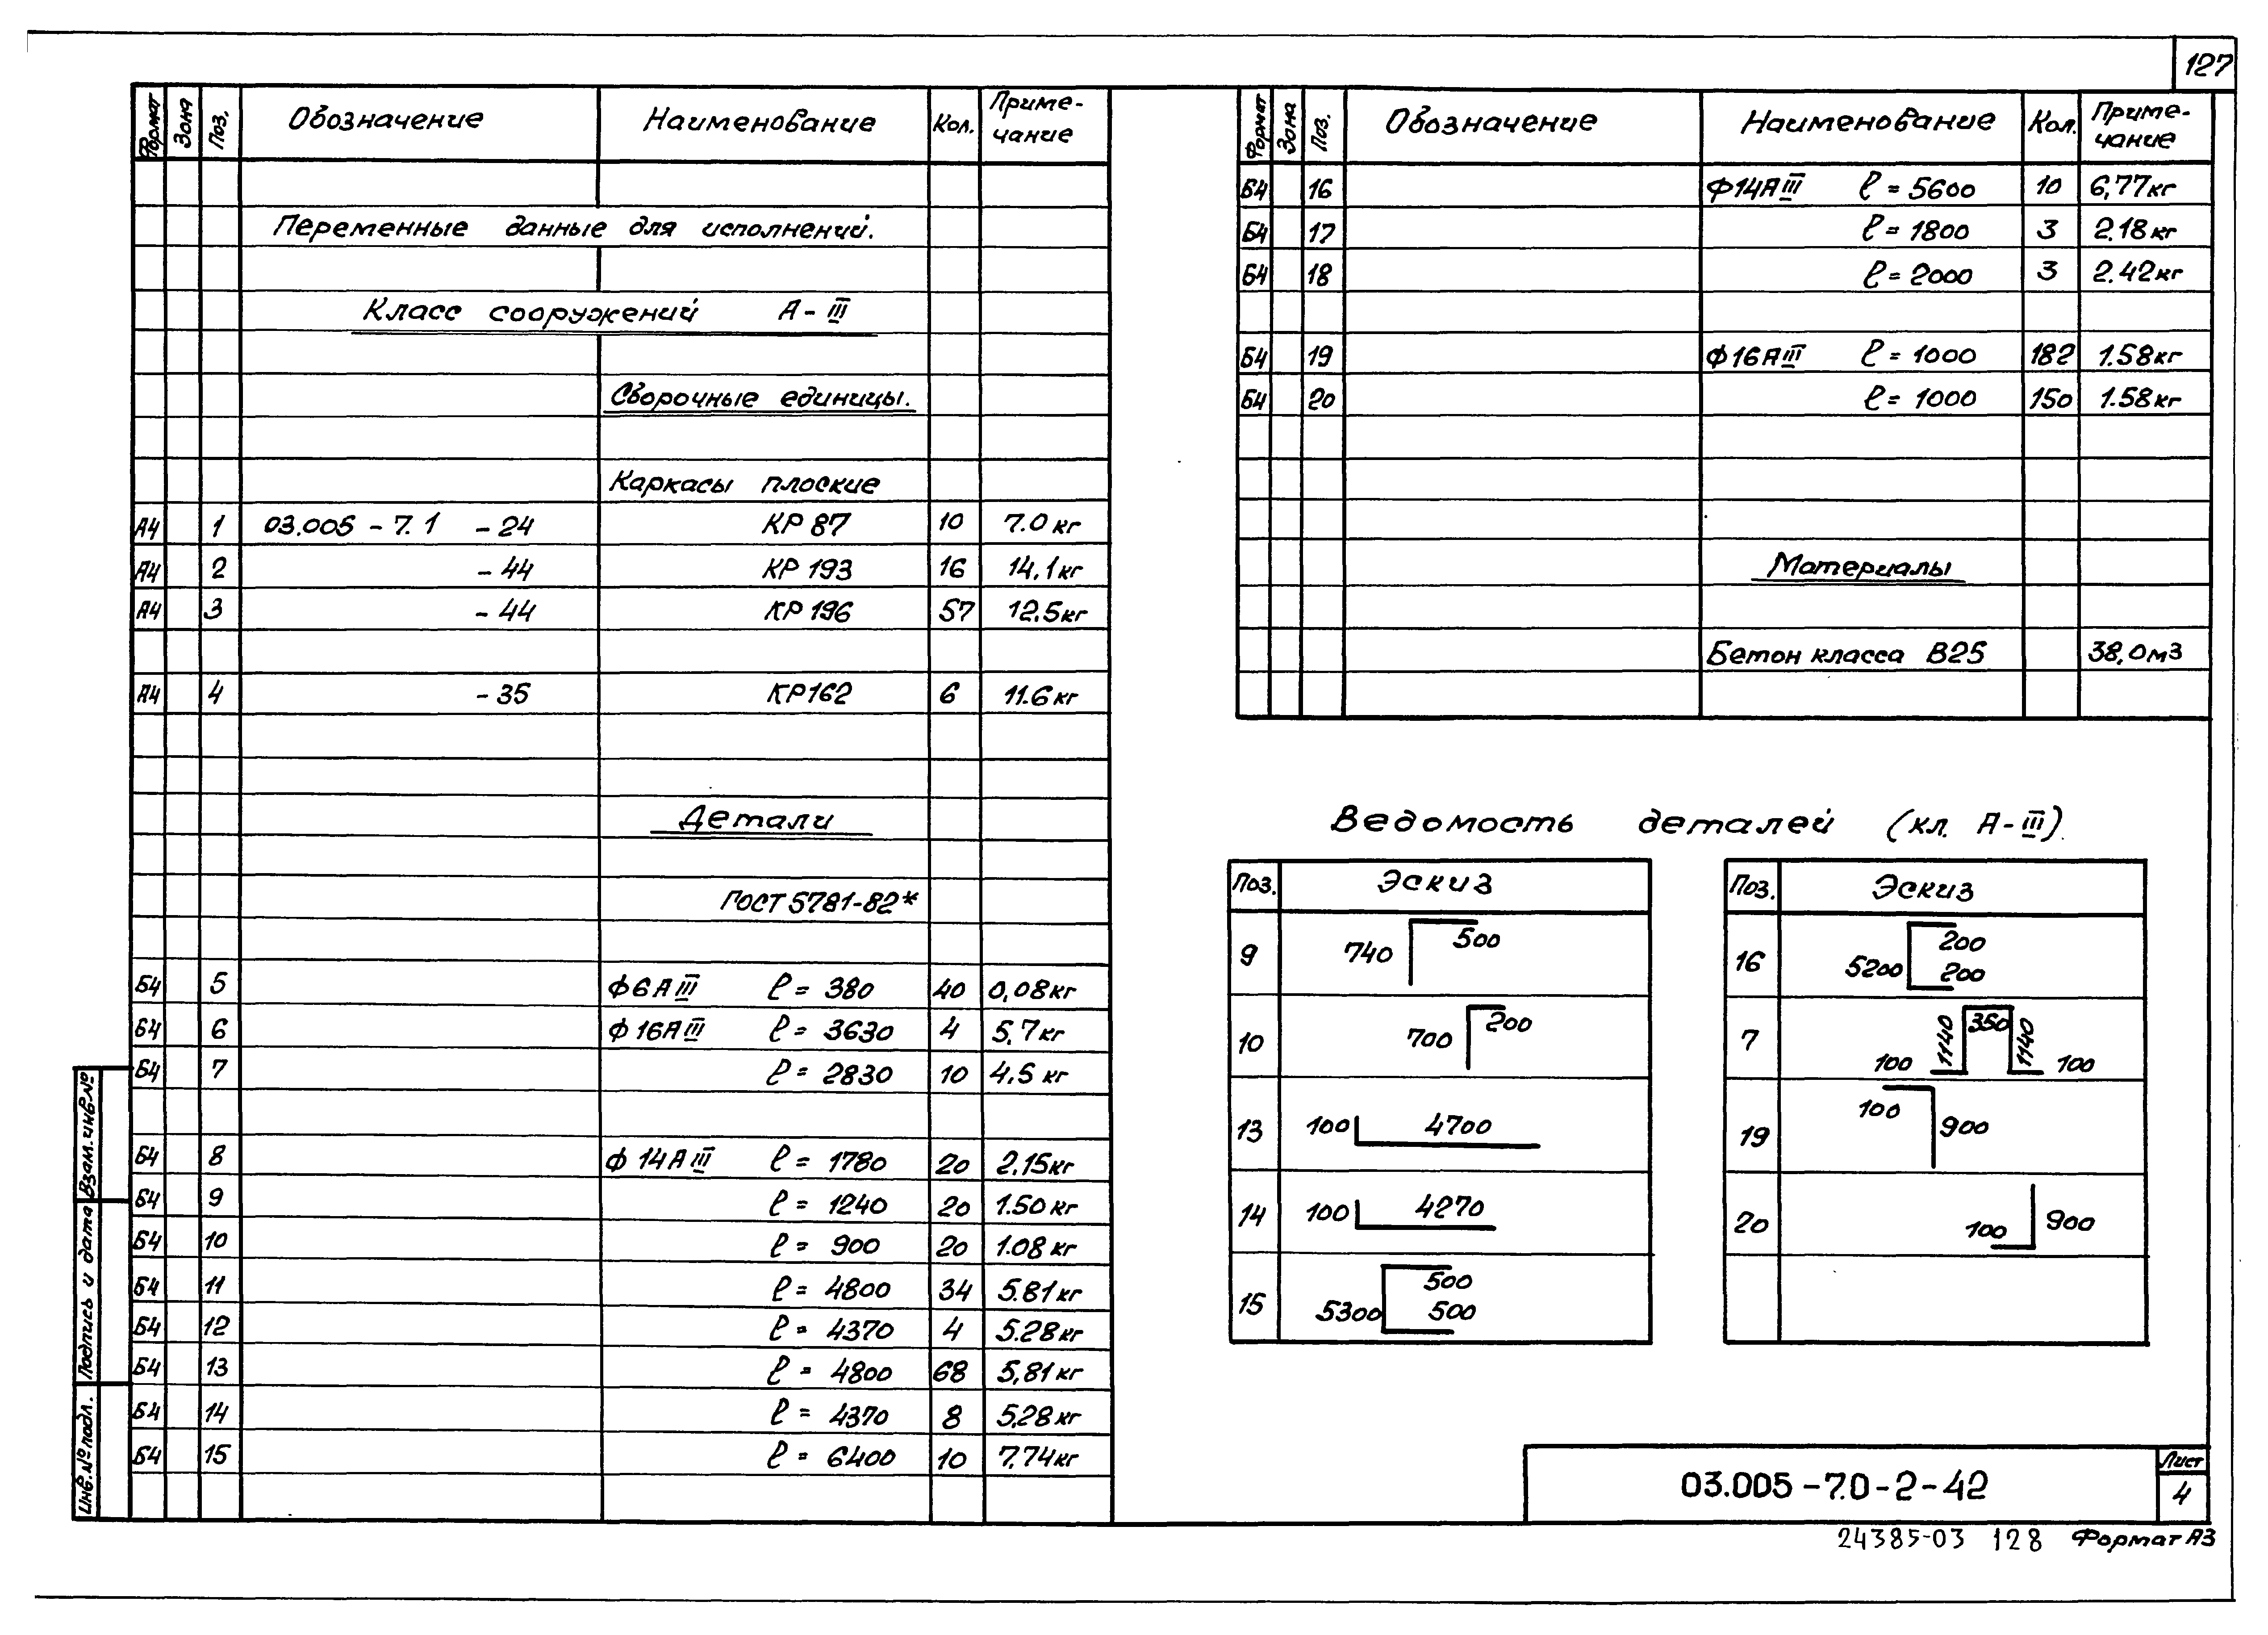 127
Формат Зона Поз. Обозначение Наименование Кол. Приме-
чание
Переменные данные для исполнений.
Класс сооружений А-III
Сборочные единицы.
Каркасы плоские
А4 1 03.005-7.1 -24 КР 87 10 7.0 кг
А4 2 -44 КР 193 16 14,1кг
А4 3 -44 КР 196 57 12.5кг
А4 4 -35 КР162 6 11.6 кг
Детали
ГОСТ 5781-82*
Б4 5 Ф6АIII ℓ= 380 40 0,08кг
Б4 6 Ф16АIII ℓ= 3630 4 5,7кг
Б4 7 ℓ= 2830 10 4,5 кг
Б4 8 Ф 14АIII ℓ= 1780 20 2,15кг
Б4 9 ℓ= 1240 20 1.50 кг
Б4 10 ℓ= 900 20 1.08 кг
Б4 11 ℓ= 4800 34 5.81 кг
Б4 12 ℓ= 4370 4 5.28кг
Б4 13 ℓ= 4800 68 5,81 кг
Б4 14 ℓ= 4370 8 5,28 кг
Б4 15 ℓ= 6400 10 7,74кг
Формат Зона Поз. Обозначение Наименование Кол. Приме-
чание
Б4 16 Ф14АIII ℓ= 5600 10 6,77кг
Б4 17 ℓ= 1800 3 2.18 кг
Б4 18 ℓ= 2000 3 2.42кг
Б4 19 Ф16АIII ℓ= 1000 182 1.58кг
Б4 20 ℓ= 1000 150 1.58кг
Материалы
Бетон класса В25 38,0м3
Ведомость деталей (кл. А-III)
Поз. Эскиз
9 740 500
10 700 200
13 100 4700
14 100 4270
15 5300 500
500
Поз. Эскиз
16 5200 200
200
7 100 1140 350 1140 100
19 100 900
20 100 900
Взам.инв.№
Подпись и дата
Инв.№ подл.
03.005-7.0-2-42
Лист
4
24385-03 128 Формат А3